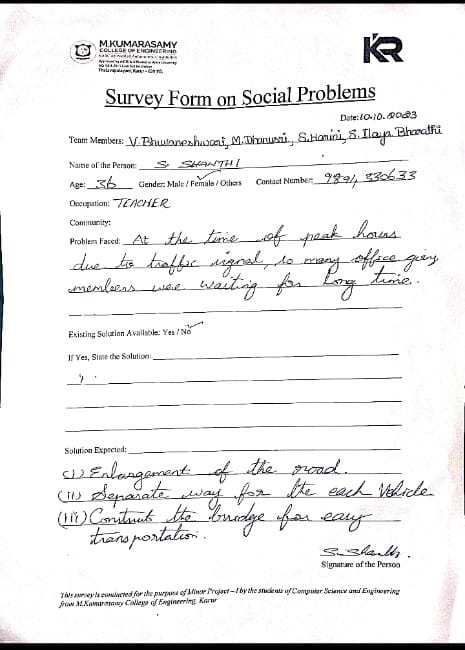 M.KUMARASAMY
COLLEGE OF ENGINEERING
Thalavapalayam, Karur - 639 113.
KR
Survey Form on Social Problems
Date: 10.10.2023
Team Members: V. Bhuvaneshwari, M. Dhanusri, S. Harini, S. Ilaya Bharathi
Name of the Person: S. SHANTHI
Age: 36 Gender: Male / Female / Others Contact Number:
Occupation: TEACHER
Community:
Problem Faced: At the time of peak hours
due to traffic signal, so many office going
members were waiting for long time.
Existing Solution Available: Yes / No
If Yes, State the Solution:
Solution Expected:
(i) Enlargement of the road.
(ii) Separate way for the each Vehicle
(iii) Contruts the bridge for easy
transportation.
S. Shanthi.
Signature of the Person
This survey is conducted for the purpose of Minor Project – I by the students of Computer Science and Engineering
from M.Kumarasamy College of Engineering, Karur